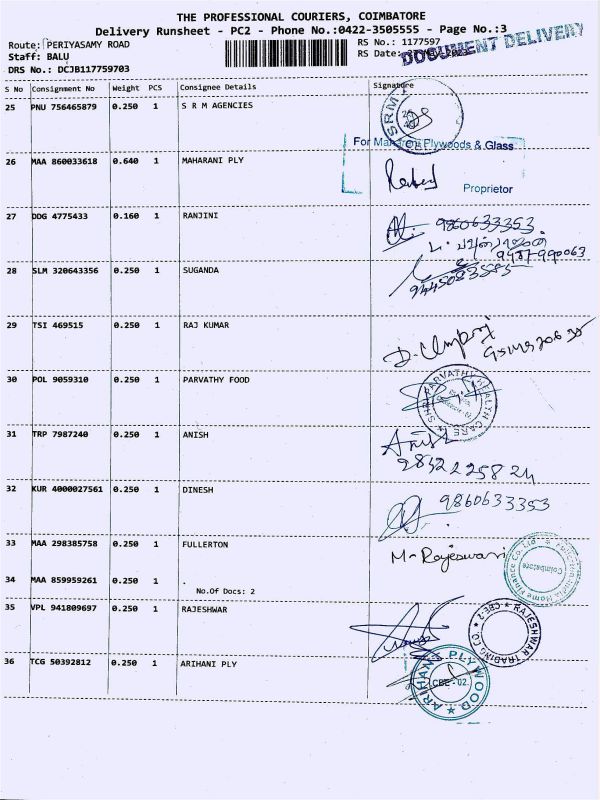 THE PROFESSIONAL COURIERS, COIMBATORE
Delivery Runsheet - PC2 - Phone No.:0422-3505555 - Page No.:3
Route: PERIYASAMY ROAD
RS No.: 1177597
Staff: BALU
RS Date:
DOCUMENT DELIVERY
DRS No.: DCJB117759703
S No Consignment No Weight PCS Consignee Details Signature
25 PNU 756465879 0.250 1 S R M AGENCIES
SRM
For Maharani Plywoods & Glass
26 MAA 860033618 0.640 1 MAHARANI PLY
Proprietor
27 DDG 4775433 0.160 1 RANJINI
9860633353
28 SLM 320643356 0.250 1 SUGANDA
29 TSI 469515 0.250 1 RAJ KUMAR
30 POL 9059310 0.250 1 PARVATHY FOOD
SHRI PARVATHY HEALTH CARE
31 TRP 7987240 0.250 1 ANISH
Anish
98422 258 24
32 KUR 4000027561 0.250 1 DINESH
9860633353
33 MAA 298385758 0.250 1 FULLERTON
M-Rajeswari
Home Finance Co. Ltd
Coimbatore
34 MAA 859959261 0.250 1 .
No.Of Docs: 2
35 VPL 941809697 0.250 1 RAJESHWAR
RAJESHWAR TRADING CO. CBE-2
36 TCG 50392812 0.250 1 ARIHANI PLY
ARIHANT PLYWOOD
CBE - 02.